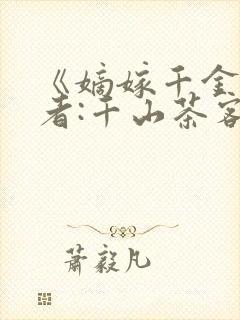 《嫡嫁千金
者:千山茶客
萧毅凡